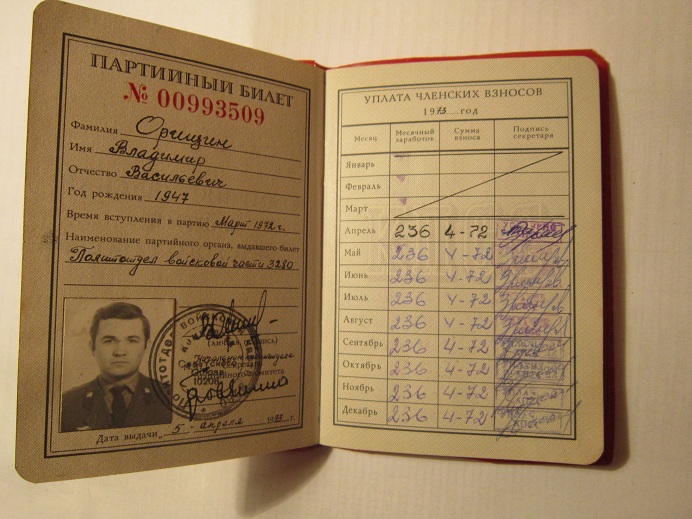 ПАРТИЙНЫЙ БИЛЕТ
№ 00993509
Фамилия
Имя Владимир
Отчество Васильевич
Год рождения 1947
Время вступления в партию Март 1972 г.
Наименование партийного органа, выдавшего билет
Политотдел войсковой части 3280
(личная подпись)
10208
Дата выдачи 5 - апреля 1973 г.
УПЛАТА ЧЛЕНСКИХ ВЗНОСОВ
1973 год
Месяц Месячный заработок Сумма взноса Подпись секретаря
Январь
Февраль
Март
Апрель 236 4-72
Май 236 4-72
Июнь 236 4-72
Июль 236 4-72
Август 236 4-72
Сентябрь 236 4-72
Октябрь 236 4-72
Ноябрь 236 4-72
Декабрь 236 4-72